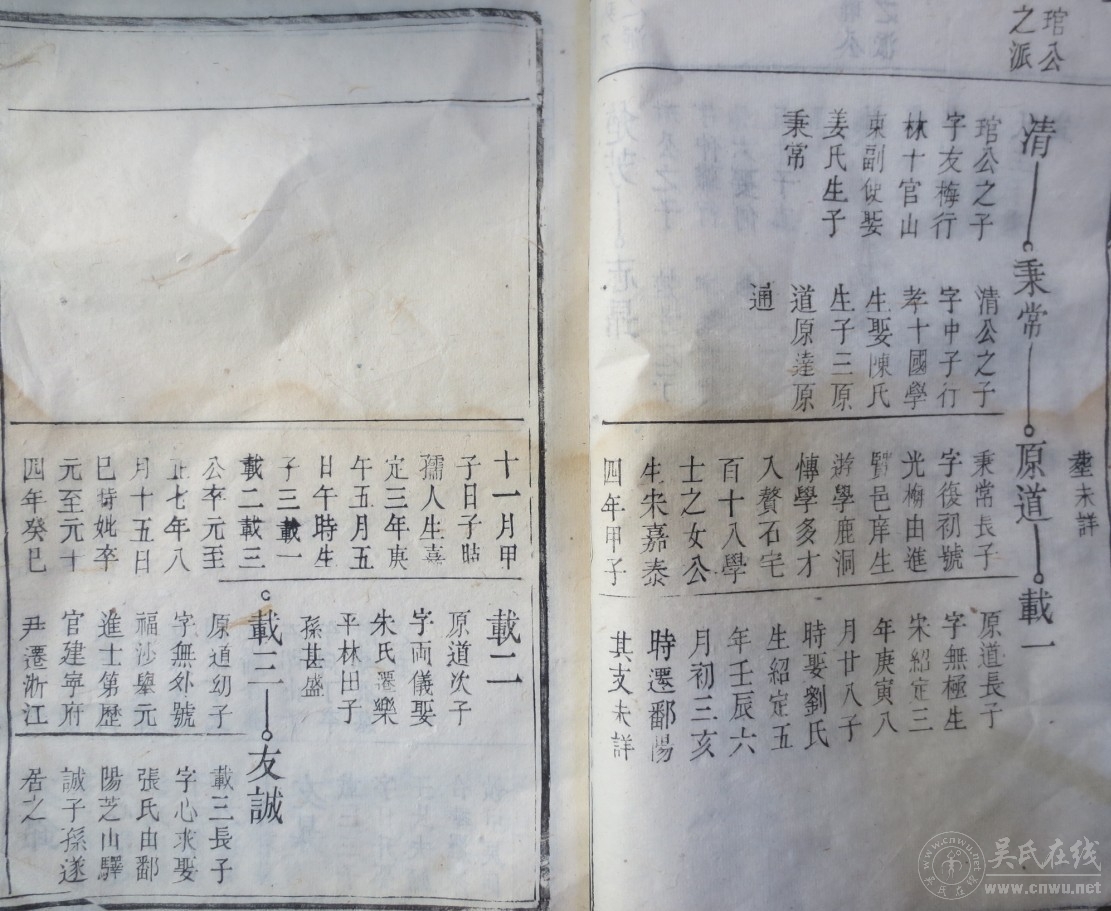 琯公
之派
清
琯公之子
字友梅行
林十官山
東副使娶
姜氏生子
秉常
秉常
清公之子
字中子行
孝十國學
生娶陳氏
生子三原
道原達原
通
塟未詳
原道
秉常長子
字復初號
光榆由進
賢邑庠生
遊學鹿洞
博學多才
入贅石宅
百十八學
士之女公
生宋嘉泰
四年甲子
載一
原道長子
字無極生
宋紹定三
年庚寅八
月廿八子
時娶劉氏
生紹定五
年壬辰六
月初三亥
時遷鄱陽
其支未詳
十一月甲
子日子時
孺人生嘉
定三年庚
午五月五
日午時生
子三載一
載二載三
公卒元至
正七年八
月十五日
巳時妣卒
元至元十
四年癸巳
載二
原道次子
字両儀娶
朱氏遷樂
平林田子
孫甚盛
載三
原道幼子
字無外號
福沙舉元
進士第歷
官建寧府
尹遷浙江
友誠
載三長子
字心求娶
張氏由鄱
陽芝山驛
誠子孫遂
居之
吳氏在线
www.cnwu.net